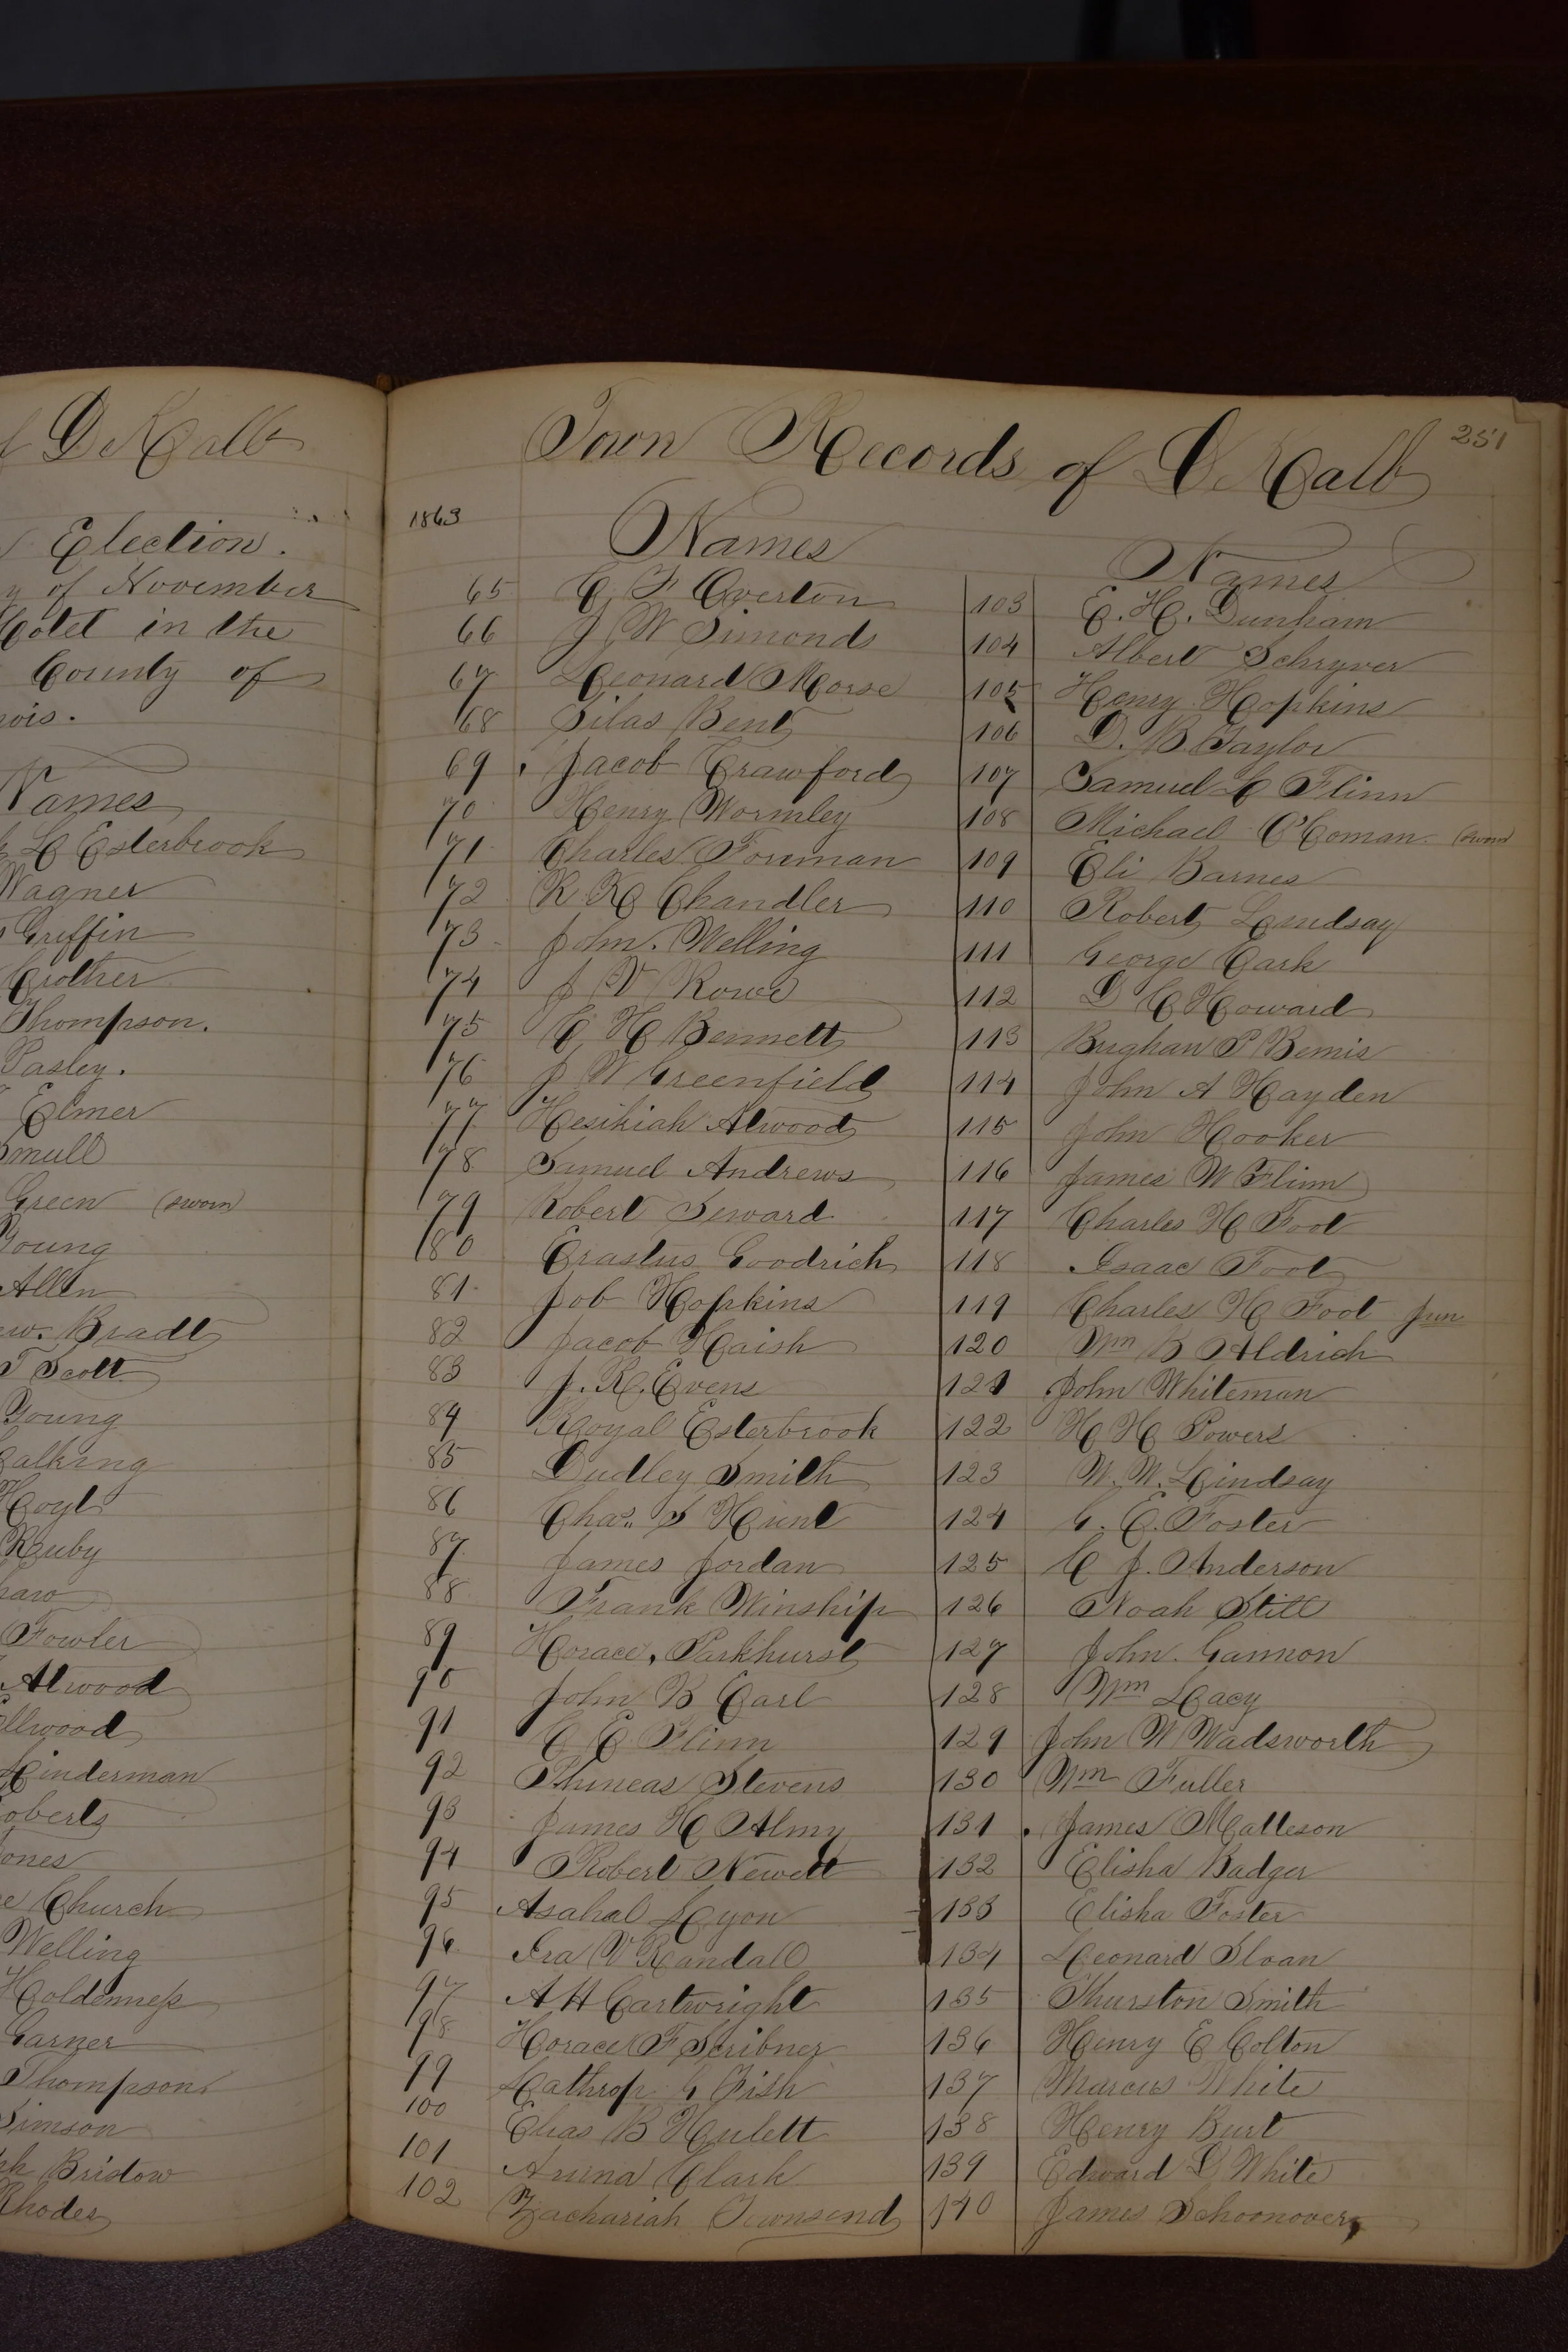 DeKalb
Election.
of November
in the
County of
Names
Esterbrook
Wagner
Griffin
Crother
Thompson.
Pasley.
Elmer
Smull
Green (sworn)
Young
Allen
Bradt
T Scott
Young
Hoyt
Ruby
Fowler
Atwood
Ellwood
Hinderman
Roberts
Jones
Church
Welling
Holdenness
Garner
Thompson
Simson
Bristow
Rhodes
251
Town Records of DeKalb
1863
Names
65 C F Overton
66 J W Simonds
67 Leonard Morse
68 Silas Bent
69 Jacob Crawford
70 Henry Wormley
71 Charles Foreman
72 R K Chandler
73 John. Welling
74 J V Rowe
75 C H Bennett
76 J W Greenfield
77 Hesikiah Atwood
78 Samuel Andrews
79 Robert Seward
80 Erastus Goodrich
81 Job Hopkins
82 Jacob Haish
83 J. R. Evens
84 Royal Esterbrook
85 Dudley Smith
86 Chas. S Hunt
87 James Jordan
88 Frank Winship
89 Horace, Parkhurst
90 John B Earl
91 C E Flinn
92 Phineas Stevens
93 James H Almy
94 Robert Newett
95 Asahal Lyon
96 Ira V Randall
97 A H Cartwright
98 Horace F Scribner
99 Lathrop G Fish
100 Elias B Hulett
101 Clark
102 Zachariah Townsend
Names
103 E. H. Dunham
104 Albert Schryver
105 Henry Hopkins
106 D. B. Taylor
107 Samuel C Flinn
108 Michael O'Coman (sworn)
109 Eli Barnes
110 Robert Lindsay
111 George Cark
112 D C Howard
113 Brighaw P Bemis
114 John A Hayden
115 John Hooker
116 James W Flinn
117 Charles H Foot
118 Isaac Foot
119 Charles H Foot Jun
120 Wm B Aldrich
121 John Whiteman
122 H H Powers
123 W. W. Lindsay
124 G. E. Foster
125 C J. Anderson
126 Noah Still
127 John. Gannon
128 Wm Lacy
129 John W Wadsworth
130 Wm Fuller
131 James Matteson
132 Elisha Badger
133 Elisha Foster
134 Leonard Sloan
135 Thurston Smith
136 Henry E Colton
137 Marcus White
138 Henry Burt
139 Edward D White
140 James Schoonover